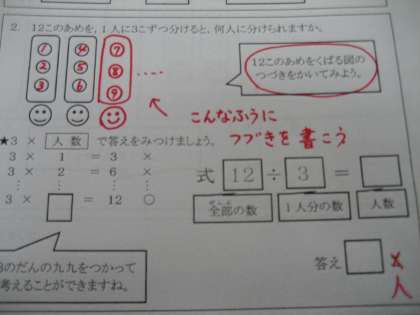 2. 12このあめを,1人に3こずつ分けると,何人に分けられますか。
① ④ ⑦
② ⑤ ⑧
③ ⑥ ⑨
12このあめをくばる図の
つづきをかいてみよう。
こんなふうに
つづきを書こう
★3 × 人数 で答えをみつけましょう。
3 × 1 = 3 ×
3 × 2 = 6 ×
3 × = 12 ○
式 12 ÷ 3 =
ぜんぶ
全部の数 1人分の数 人数
のだんの九九をつかって
考えることができますね。
答え 人